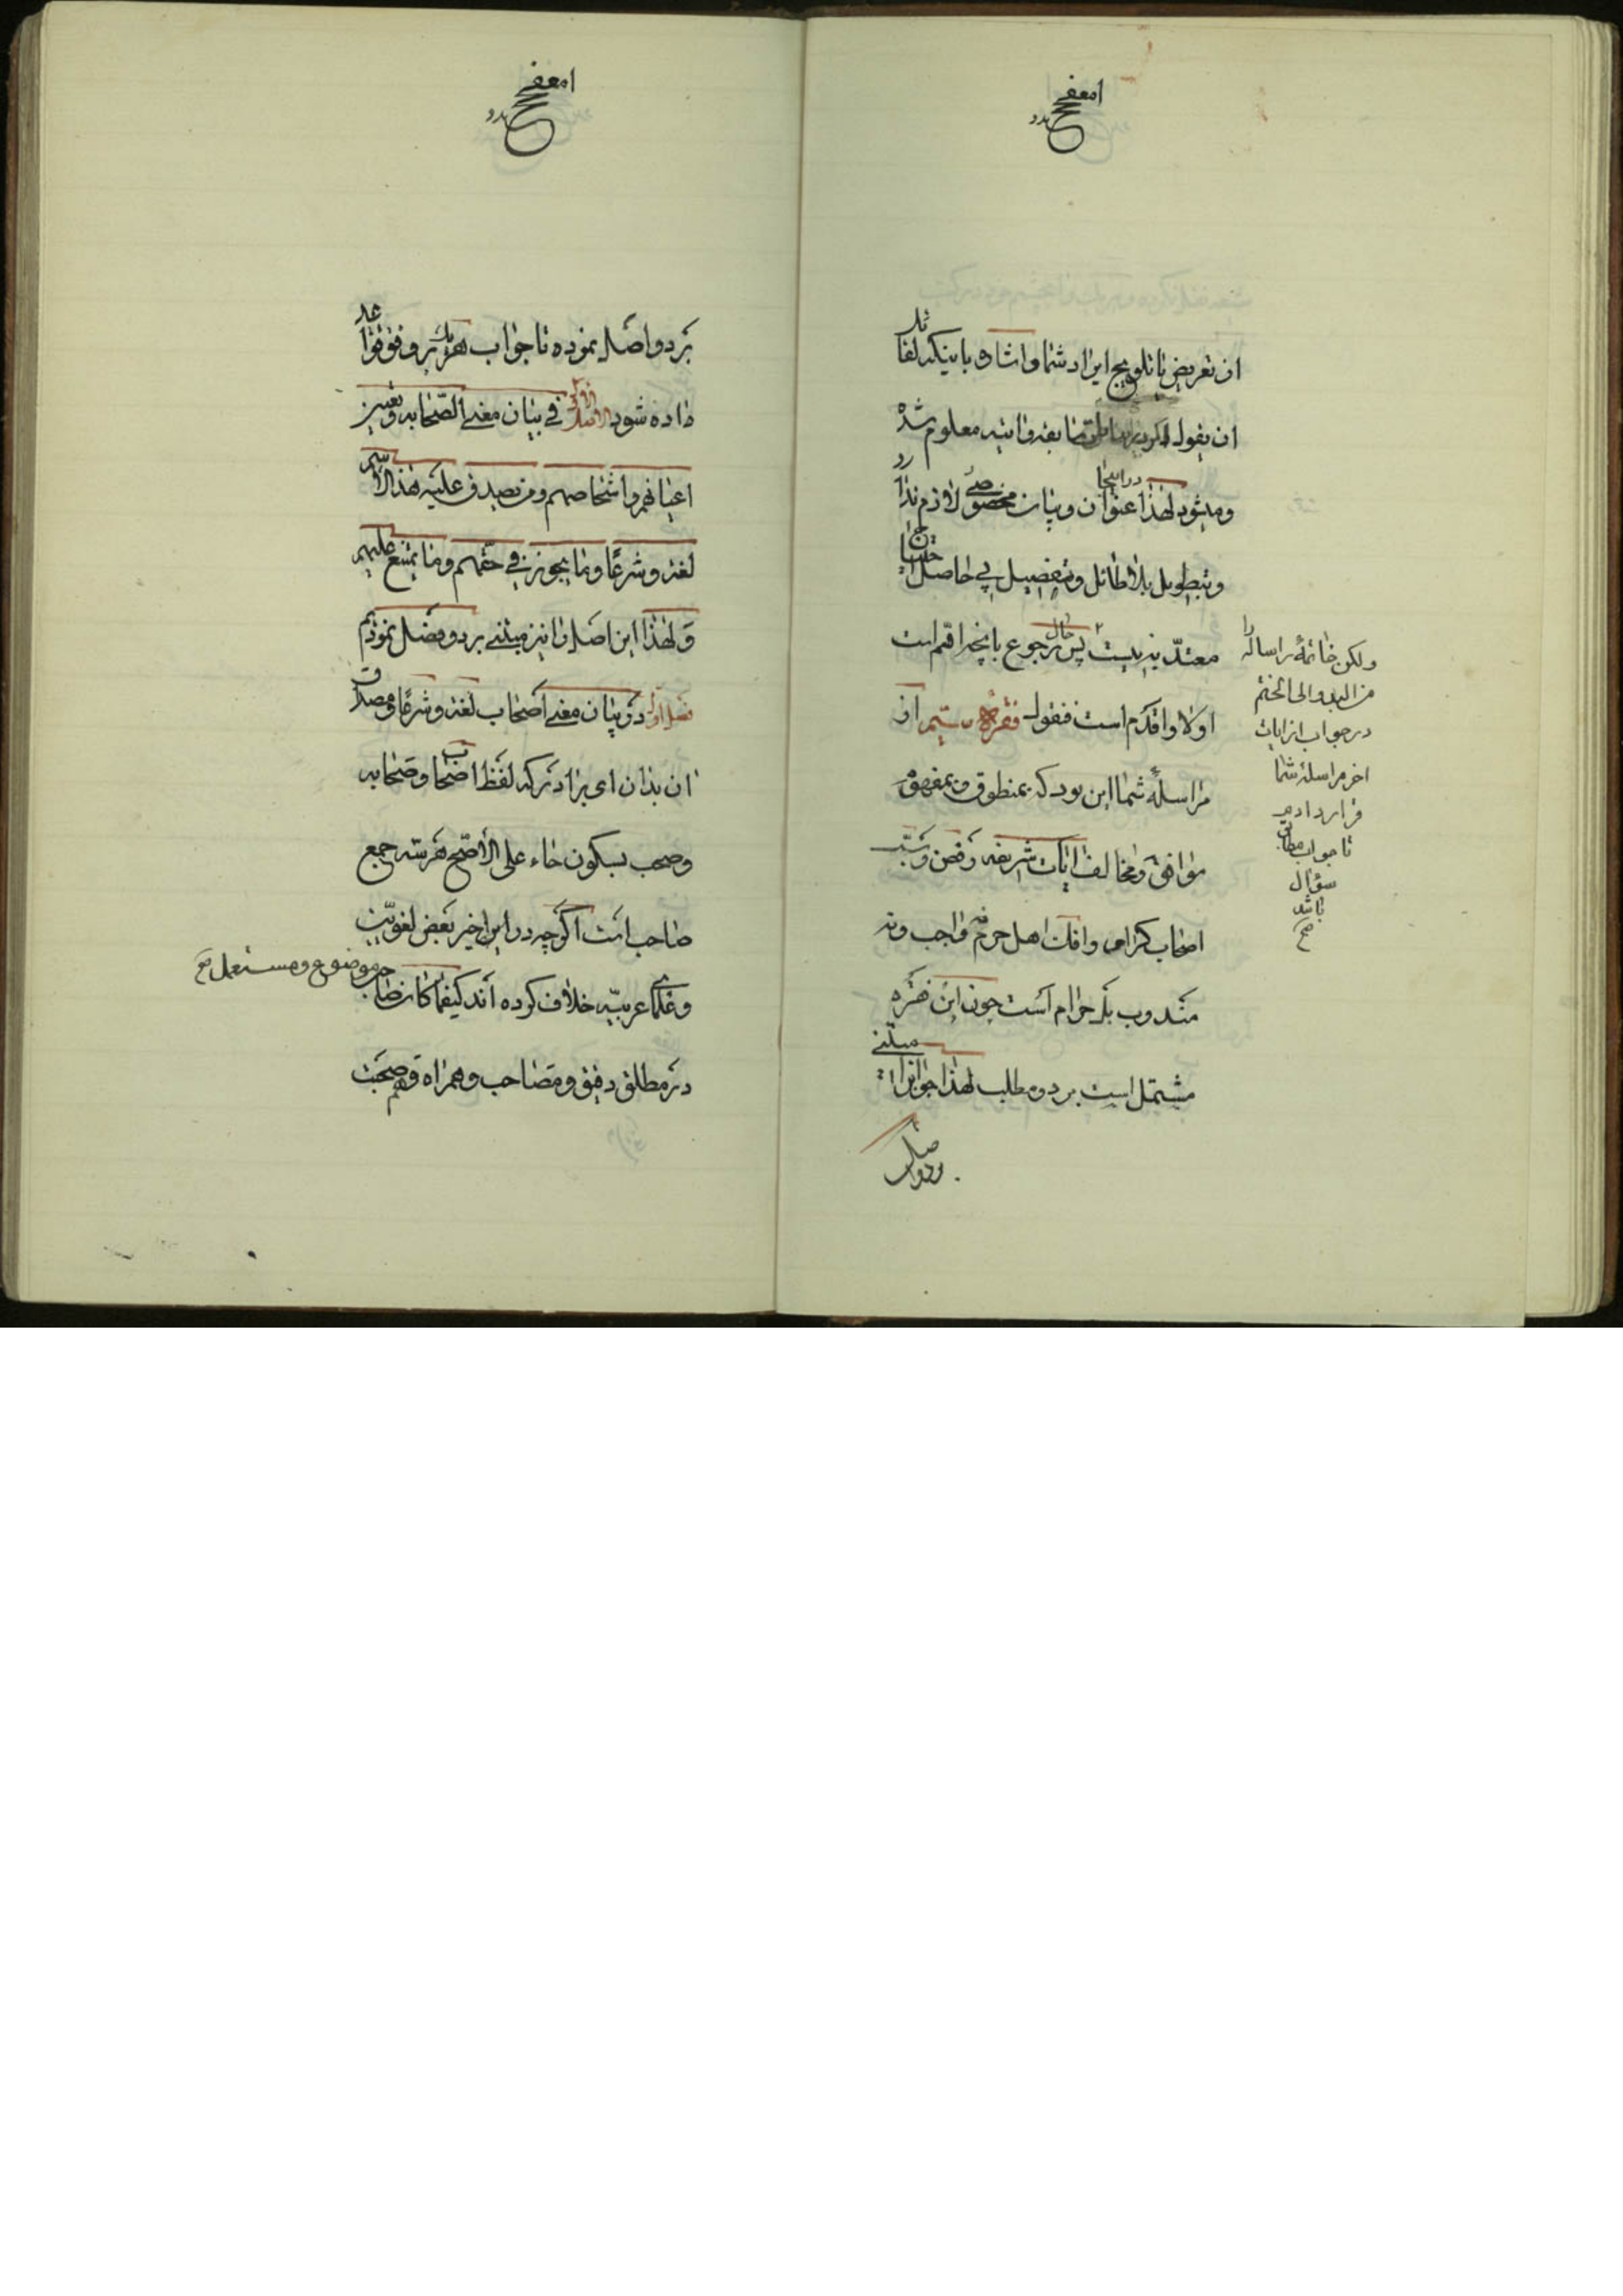 ان تعریض یا تلویح ایراد شما و اشاره باینکه لقائل
ان یقول معلوم شده
و میشود لهذا در اینجا عنوان و بیان مخصوصی لازم ندارد
و تطویل بلا طائل و تفصیل بی حاصل چندان
معتد به نیست پس حال رجوع بآنچه اهم است
اولا و اقدم است فنقول فقره سیم از
مراسلهٔ شما این بود که بمنطوق و بمفهوم
موافق و مخالف آیات شریفه رفض و سب
اصحاب کرام و افک اهل حرم نه واجب و نه
مندوب بلکه حرام است چون این فقره
مشتمل است بر دو مطلب لهذا جوابرا مبتنی
بر دو اصل
ولکن خاتمهٔ رساله را
من البدو الی الختم
در جواب از ایات
اخر مراسلهٔ شما
قرار دادم
تا جواب مطابق
سؤال
باشد
صح
بر دو اصل نموده تا جواب هر یک بر وفق قواعد
داده شود الاصل الاول فی بیان معنی الصحابه و تعیین
اعیانهم و اشخاصهم و من یصدق علیه هذا الاسم
لغة و شرعًا و ما یجوز فی حقهم و ما یمتنع علیهم
و لهذا این اصل را نیز مبتنی بر دو فصل نمودیم
فصل اول در بیان معنی اصحاب لغة و شرعًا و مصداق
ان بدان ای برادر که لفظ اصحاب و صحابه
و صحب بسکون حاء علی الأصح هر سه جمع
صاحب است اگرچه در این اخیر بعض لغویین
و علمای عربیه خلاف کرده اند کیفما کان صاحب موضوع و مستعمل صح
در مطلق رفیق و مصاحب و همراه و هم صحبت